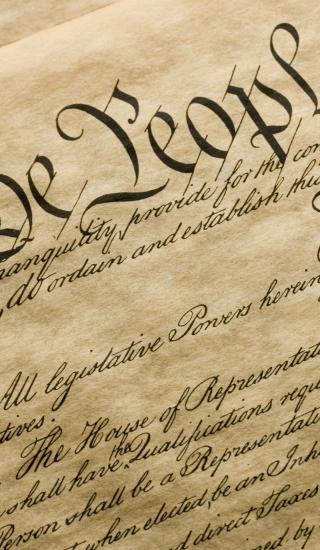 We Peopl
anquility, provide for the com
, do ordain and establish this
All legislative Powers herein
tives.
The House of Representati
shall have the Qualifications requi
Person shall be a Representati
when elected, be an Inh
d direct Taxes
ned by